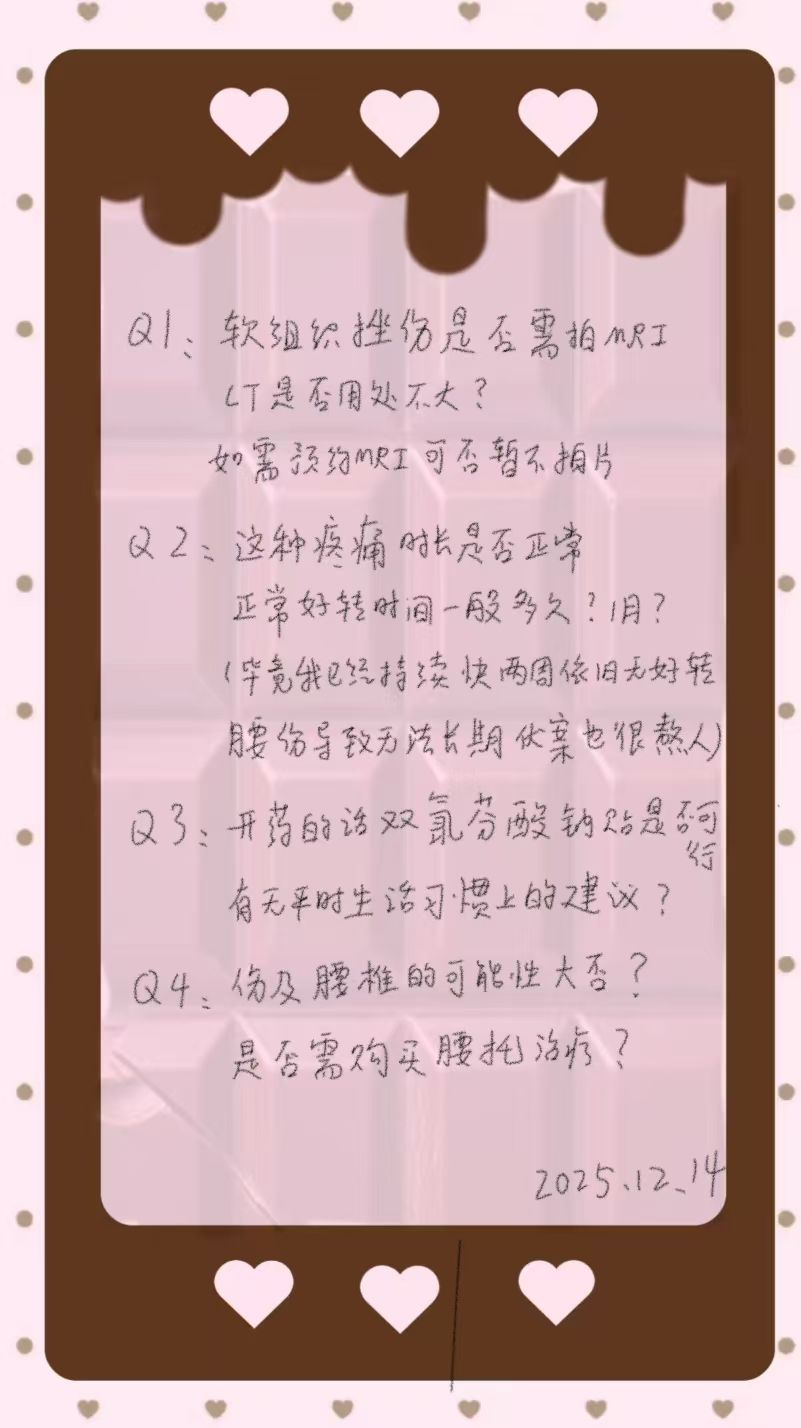 Q1：软组织挫伤是否需拍MRI
CT是否用处不大？
如需预约MRI可否暂不拍片
Q2：这种疼痛时长是否正常
正常好转时间一般多久？1月？
（毕竟我已经持续快两周依旧无好转
腰伤导致无法长期伏案也很熬人）
Q3：开药的话双氯芬酸钠贴是否可行
有无平时生活习惯上的建议？
Q4：伤及腰椎的可能性大否？
是否需购买腰托治疗？
2025.12.14